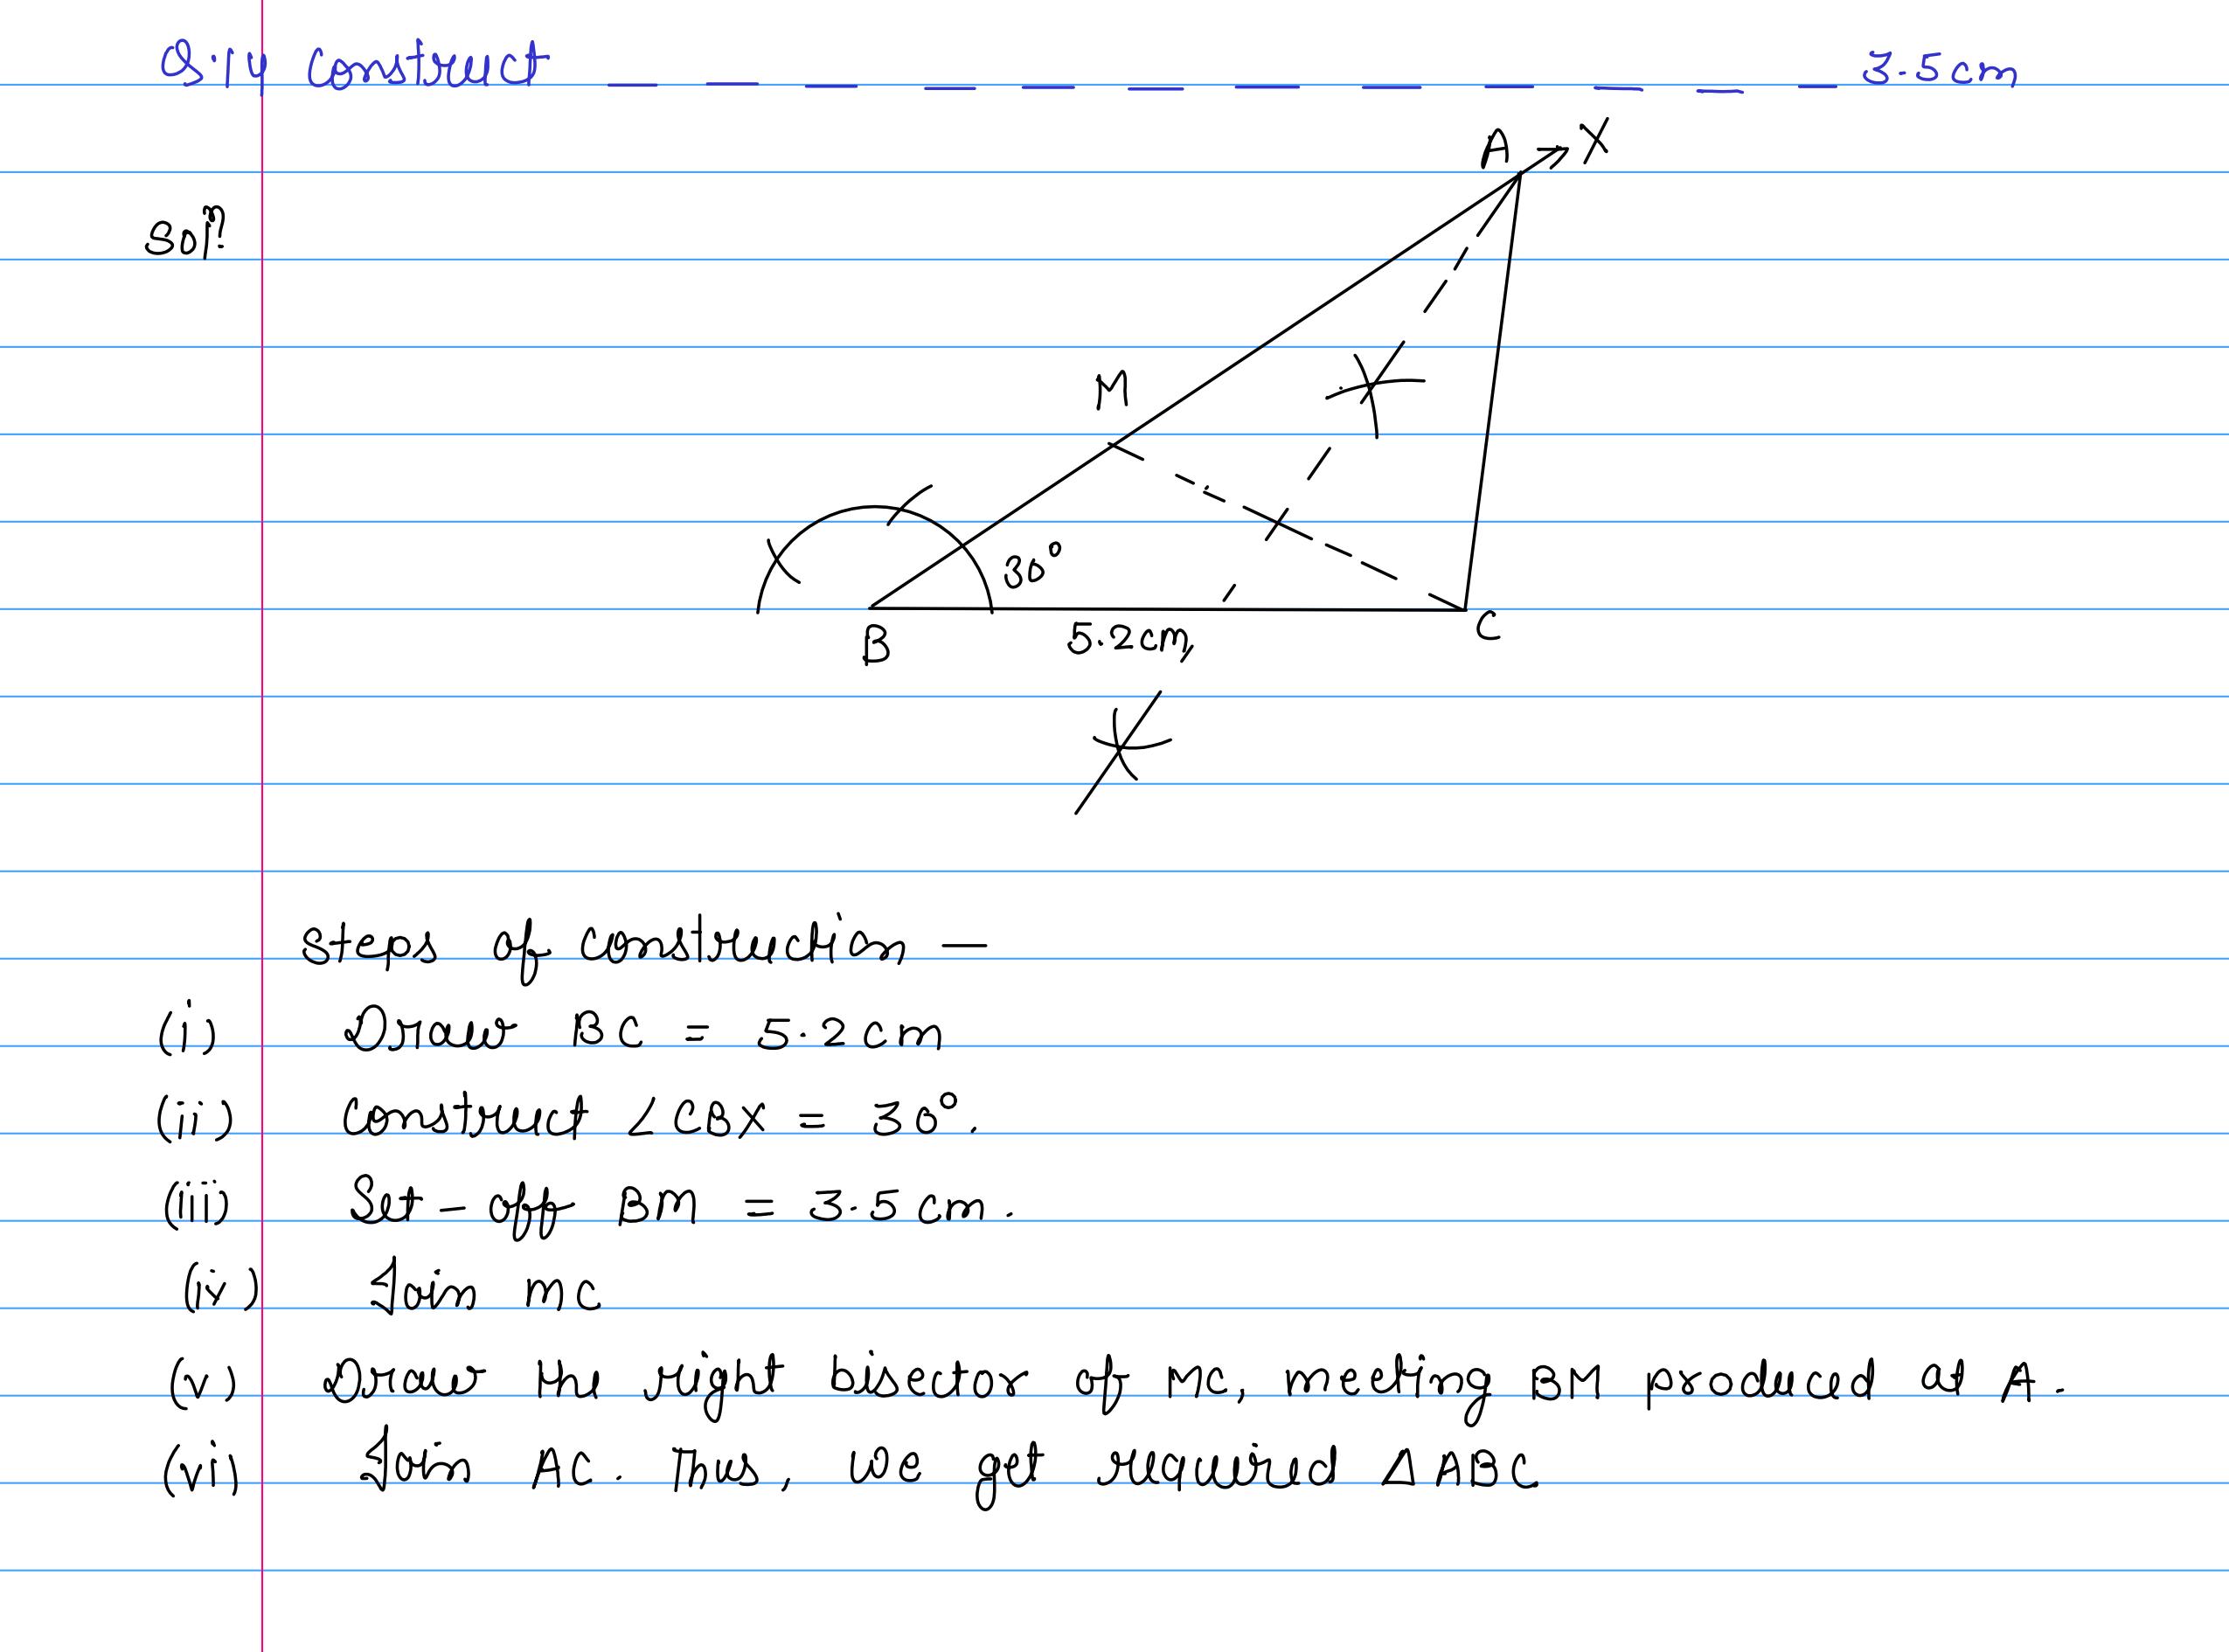 Q.14 Construct _ _ _ _ _ _ _ _ _ _ _ _ 3.5cm
A X
Solⁿ.
M
30°
B 5.2cm C
Steps of construction —
(i) Draw BC = 5.2cm
(ii) Construct ∠CBX = 30°.
(iii) Set-off BM = 3.5 cm.
(iv) Join MC
(v) Draw the right bisector of MC, meeting BM produced at A.
(vi) Join AC. Thus, we get required △ABC